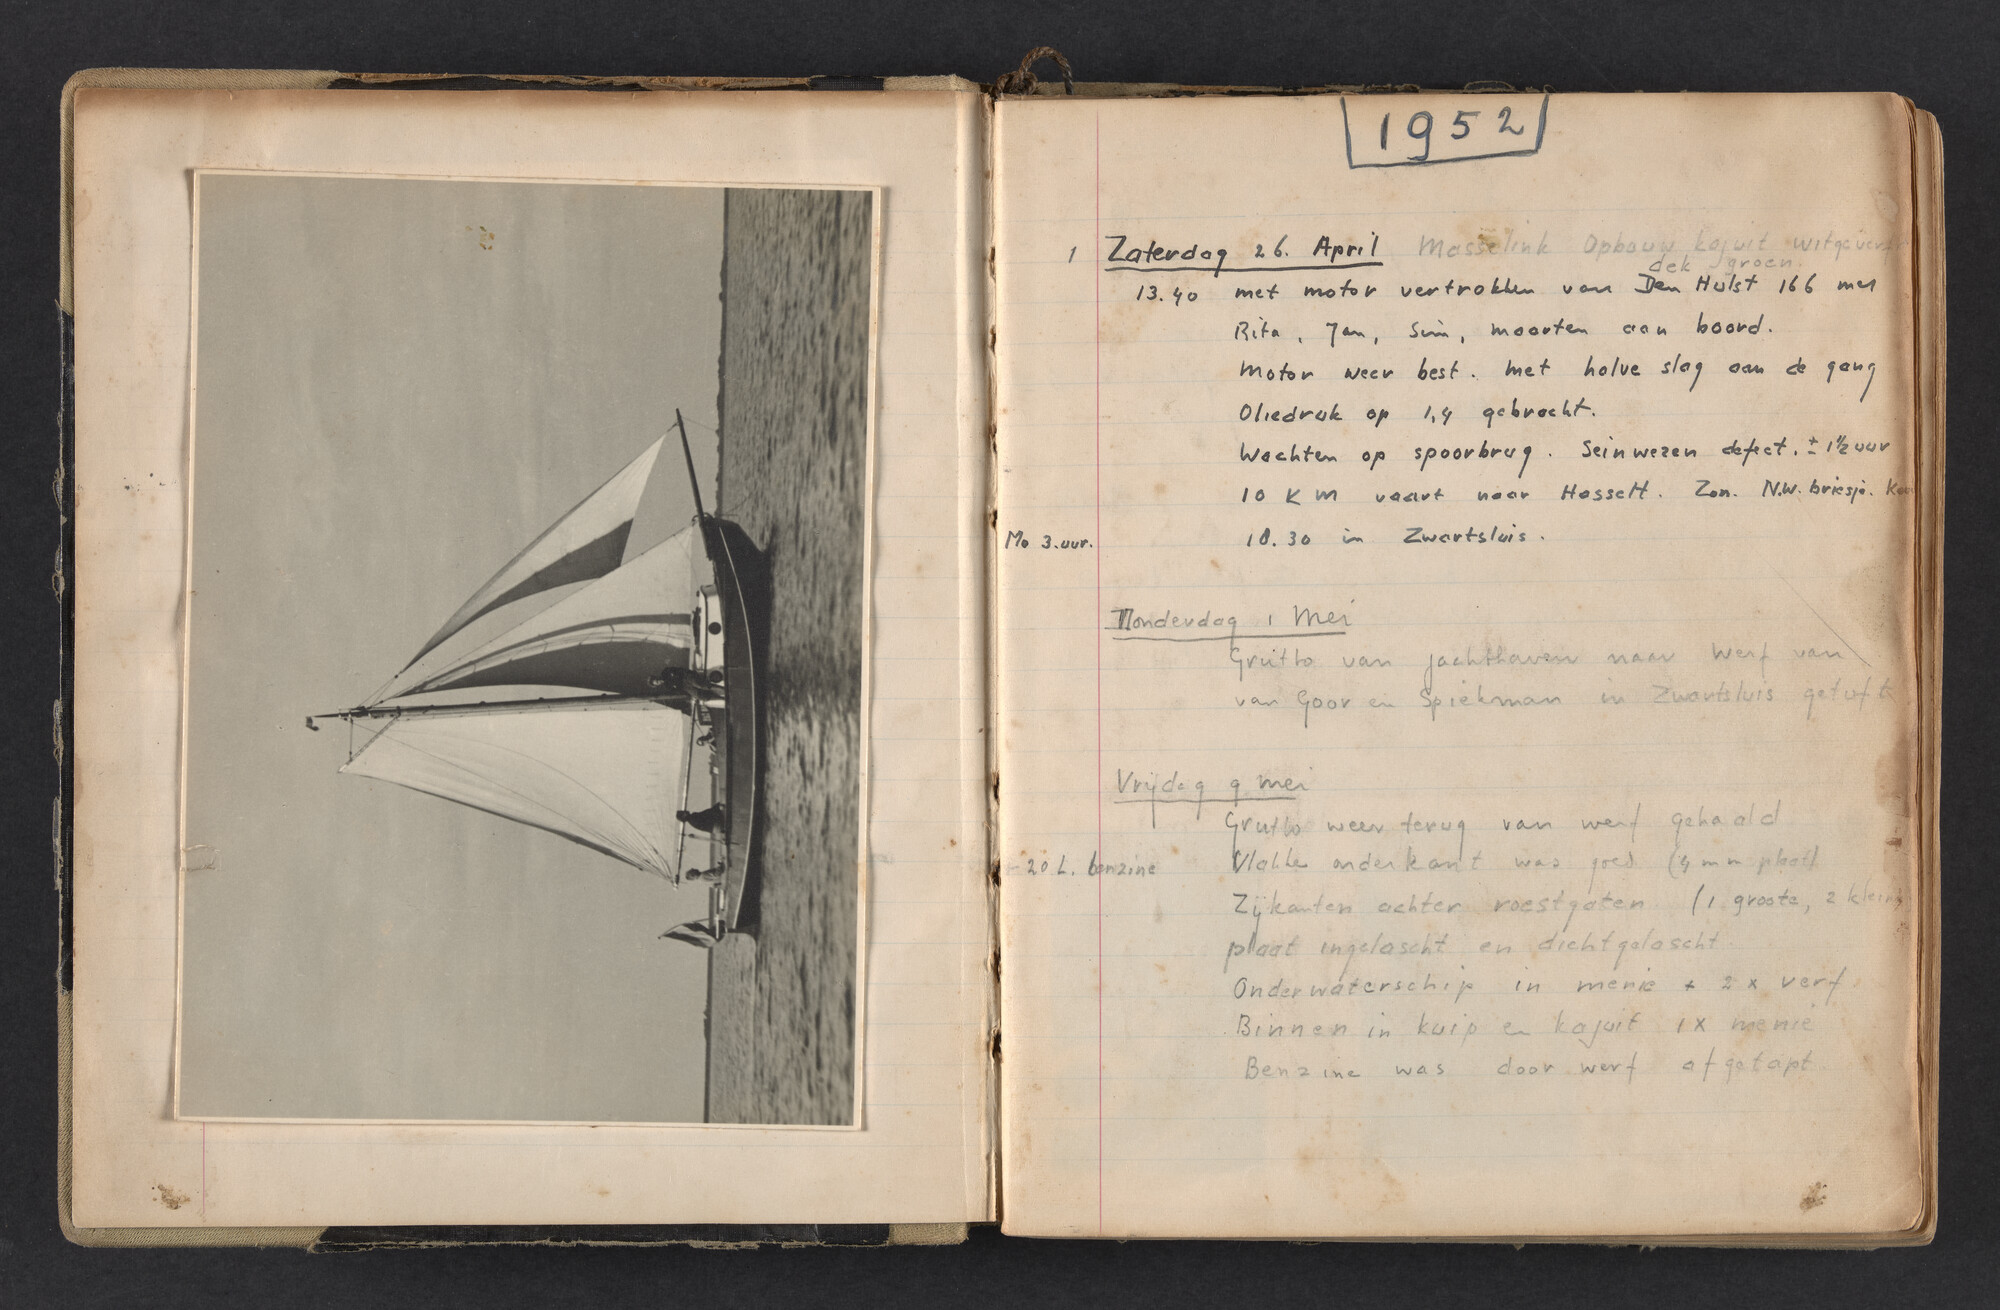 1952
1 Zaterdag 26. April Masselink Opbouw kajuit witgeverfd
dek groen.
13.40 met motor vertrokken van Den Hulst 166 met
Rita, Jan, Sim, Maarten aan boord.
Motor weer best. Met halve slag aan de gang
Oliedruk op 1,4 gebracht.
Wachten op spoorbrug. Seinwezen defect. ± 1½ uur
10 KM vaart naar Hasselt. Zon. N.W. briesje.
Mo 3.uur. 18.30 in Zwartsluis.
Donderdag 1 Mei
Grutto van jachthaven naar Werf van
van Goor en Spiekman in Zwartsluis getuft
Vrijdag 9 mei
Grutto weer terug van werf gehaald
- 20 L. benzine Vlakke onderkant was goed (4 mm plaat)
Zijkanten achter roestgaten (1 groote, 2 kleine)
plaat ingelascht en dichtgelascht
Onderwaterschip in menie + 2 x verf
Binnen in kuip en kajuit 1 x menie
Benzine was door werf afgetapt